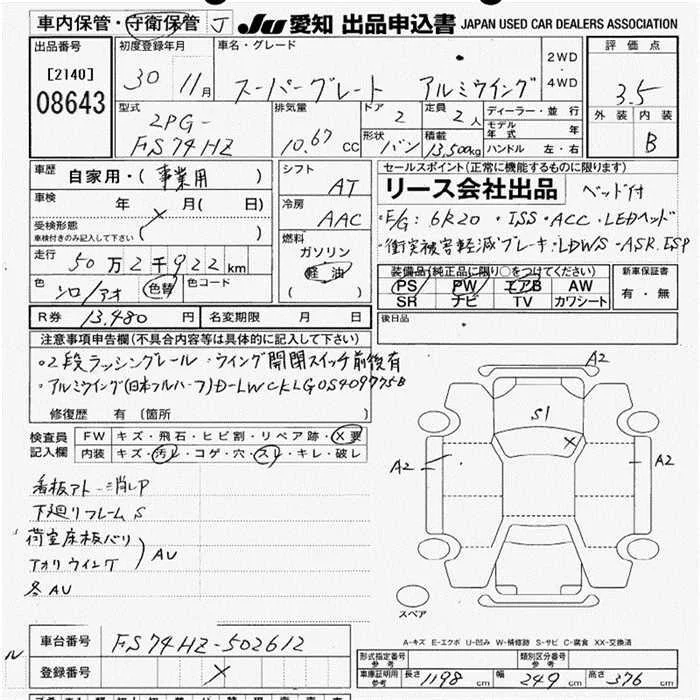 車内保管・守衛保管 J JU 愛知 出品申込書 JAPAN USED CAR DEALERS ASSOCIATION
出品番号 初度登録年月 車名・グレード 2WD・4WD 評価点
[2140] 08643 30 11月 スーパーグレート アルミウイング 3.5
型式 2PG-FS74HZ 排気量 10.67 CC ドア 2 定員 2人 ディーラー・並行 外装 内装 B
形状 バン 積載 13,500kg モデル年式 年 ハンドル 左・右
車歴 自家用・(事業用) シフト AT セールスポイント(正常に機能するものに限ります)
車検 年 月( 日) 冷房 AAC リース会社出品 ベッド付
受検形態 車検付きのみ記入して下さい ( ) 燃料 ガソリン 軽油 ( )
・E/G:6R20・ISS・ACC・LEDヘッド
・衝突被害軽減ブレーキ・LDWS・ASR.ESP
走行 50万2千922km
色 シロ/アオ 色替 色コード
装備品(純正品に限り〇をつけてください) 新車保証書
PS PW エアB AW 有・無
SR ナビ TV カワシート
R券 13,480円 名変期限 月 日 後日品
注意事項申告欄(不具合内容等は具体的に記入して下さい)
・2段ラッシングレール・ウイング開閉スイッチ前後有
・アルミウイング(日本フルハーフ)D-LWCKLGOS4097758
修復歴 有(箇所 )
検査員記入欄 FW キズ・飛石・ヒビ割・リペア跡・X要
内装 キズ・汚レ・コゲ・穴・スレ・キレ・破レ
看板アト一部消しP
下廻リフレームS
荷室床板バリ
アオリウイング AU
冬AU
A2 S1 X A2 A2
スペア
A-キズ E-エクボ U-凹み W-補修跡 S-サビ C-腐食 XX-交換済
車台番号 FS74HZ-502612
登録番号 X
形式指定番号 参考 類別区分番号 参考
車庫証明用 参考 長さ 1198cm 幅 249cm 高さ 376cm